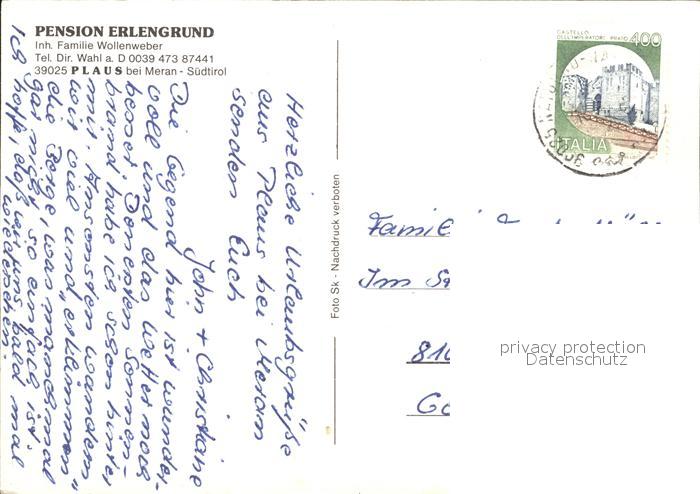 PENSION ERLENGRUND
Inh. Familie Wollenweber
Tel. Dir. Wahl a. D 0039 473 87441
39025 PLAUS bei Meran - Südtirol
Herzliche Urlaubsgrüße
aus Plaus bei Meran
senden Euch
John + Christiane
Die Gegend hier ist wunder-
voll und das Wetter noch
besser. Den ersten Sonnen-
brand habe ich schon hinter
mir. Ansonsten wandern
wir viel und "erklimmen"
die Berge, was manchmal
gar nicht so einfach ist.
Ich hoffe, daß wir uns bald mal
wiedersehen.
Foto Sk - Nachdruck verboten
CASTELLO
DELL'IMPERATORE - PRATO 400
ITALIA
39025
Famil
Im
810
privacy protection
Datenschutz